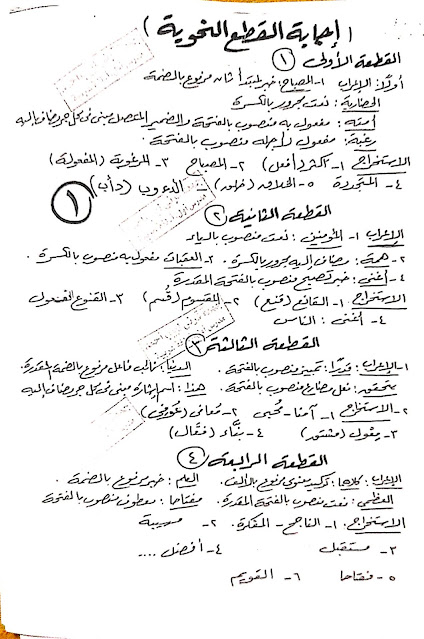 ( إجابة القطع النحوية )
القطعة الأولى ١
أولاً: الإعراب ١- المصباح: خبر لمبتدأ ثان مرفوع بالضمة
الحضارية: نعت مجرور بالكسرة
أمته: مفعول به منصوب بالفتحة والضمير المتصل مبنى فى محل جر مضاف إليه
رغبة: مفعول لأجله منصوب بالفتحة.
الاستخراج ١- أكثر (أفعل) ٢- المصباح ٣- المرغوبة (المفعولة)
٤- المتجددة ٥- الخلاق
الدءوب (دأب)
١
القطعة الثانية ٢
الإعراب ١- المؤمنين: نعت منصوب بالياء.
٢- همة: مضاف إليه مجرور بالكسرة. ٣- العقبات مفعول به منصوب بالكسرة.
٤- أغنى: خبر تصبح منصوب بالفتحة المقدرة
الاستخراج ١- القانع (قنع) ٢- المقسوم (قُسم) ٣- القنوع الفعول
٤- أغنى: الناس
القطعة الثالثة ٣
١- الإعراب: قدرًا: تمييز منصوب بالفتحة. الدنيا: نائب فاعل مرفوع بالضمة المقدرة.
فعل مضارع منصوب بالفتحة. هذا: اسم إشارة مبنى فى محل جر مضاف إليه
٢- الاستخراج ١- آمنا - محيى ٢- معافى (عوفى)
٣- مقول ٤- بنَّاء (فعَّال)
القطعة الرابعة ٤
الإعراب: كلاهما: توكيد معنوى مرفوع بالألف. العلم: خبر مرفوع بالضمة
العظمى: نعت منصوب بالفتحة المقدرة. مفتاحا: معطوف منصوب بالفتحة
الاستخراج ١- الناجح - المفكرة. ٢- مهيبة
٣- مستقبل ٤- أفضل ....
٥- مفتاحا ٦- القويم